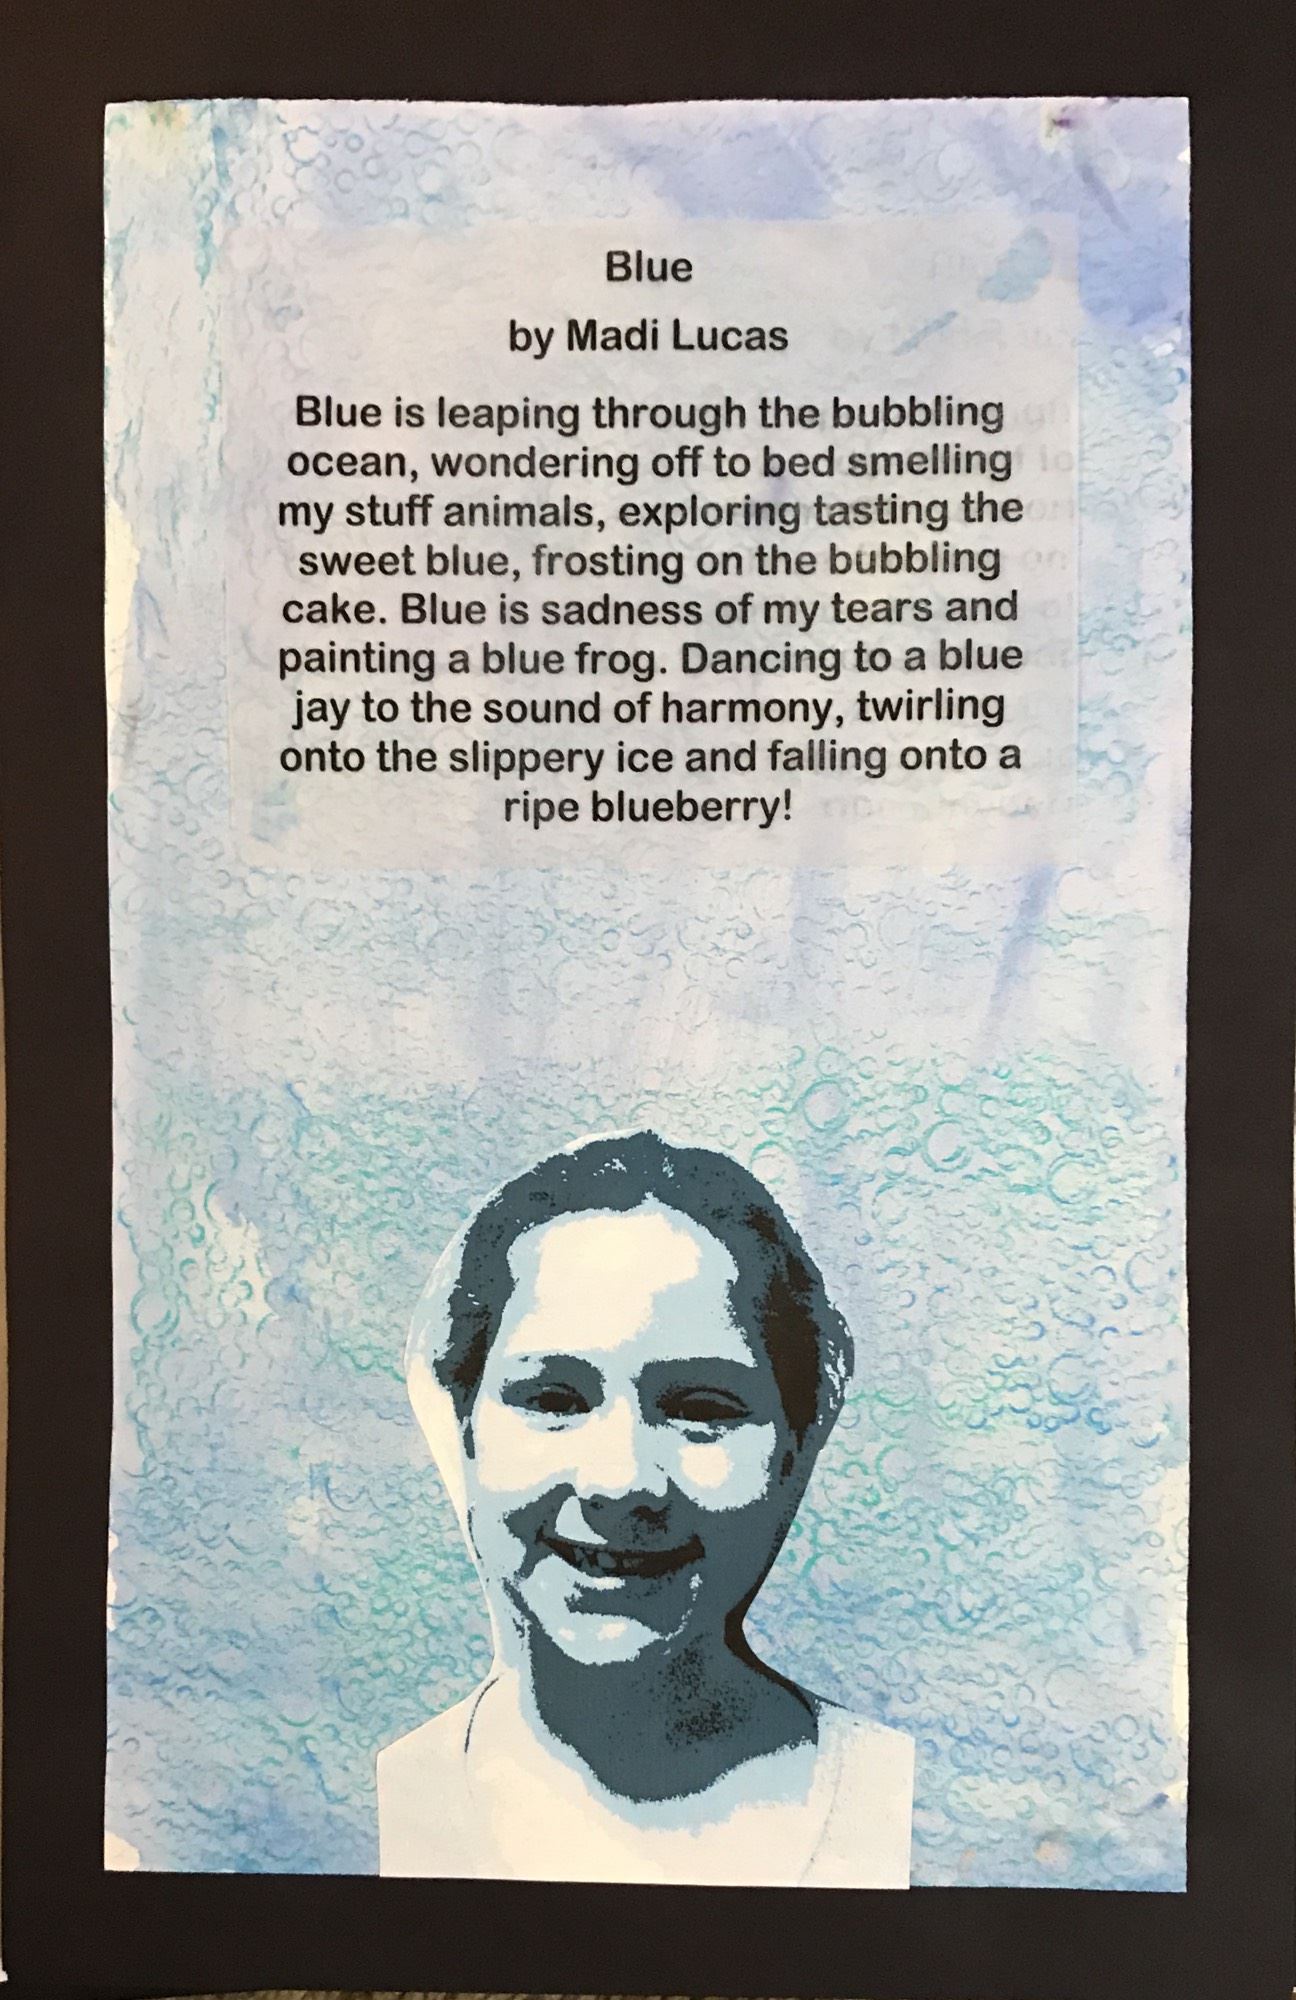 Blue
by Madi Lucas
Blue is leaping through the bubbling
ocean, wondering off to bed smelling
my stuff animals, exploring tasting the
sweet blue, frosting on the bubbling
cake. Blue is sadness of my tears and
painting a blue frog. Dancing to a blue
jay to the sound of harmony, twirling
onto the slippery ice and falling onto a
ripe blueberry!